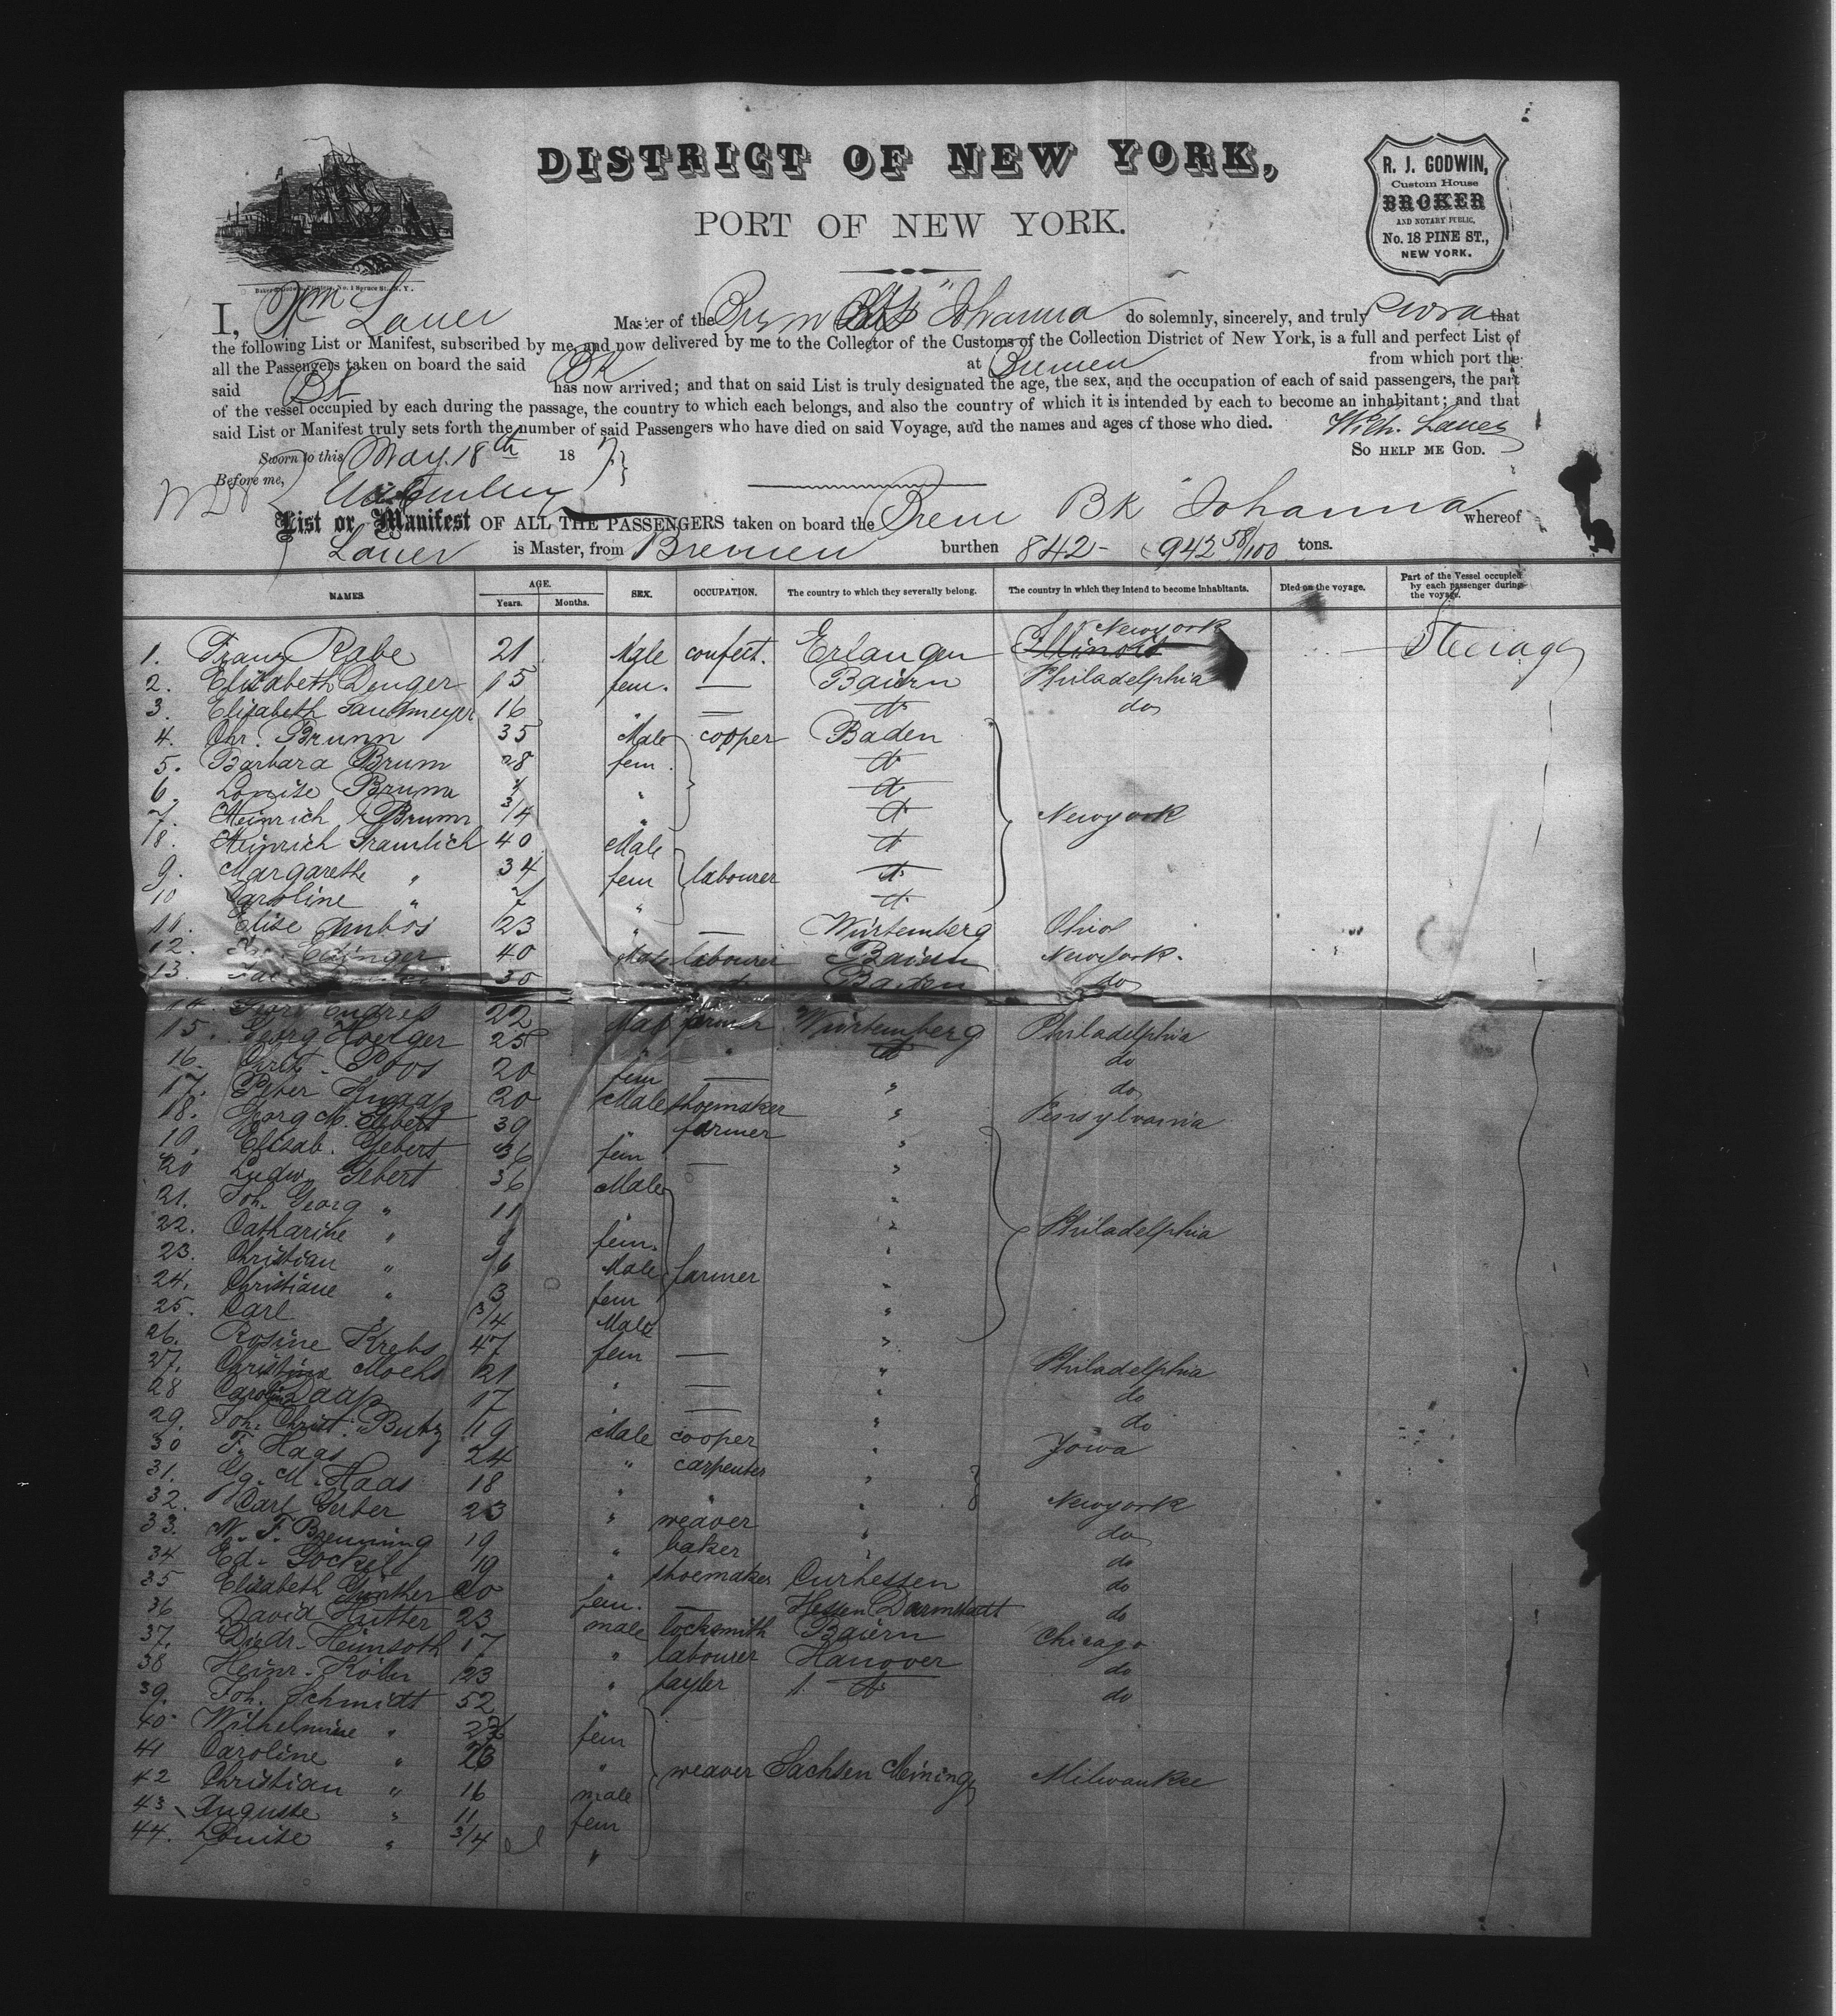 DISTRICT OF NEW YORK,
PORT OF NEW YORK.
R. J. GODWIN,
Custom House
BROKER
AND NOTARY PUBLIC,
No. 18 PINE ST.,
NEW YORK.
I, Wm Lauer Master of the Brem Johanna do solemnly, sincerely, and truly swora that
the following List or Manifest, subscribed by me, and now delivered by me to the Collector of the Customs of the Collection District of New York, is a full and perfect List of
all the Passengers taken on board the said Bk at Bremen from which port the
said Bk has now arrived; and that on said List is truly designated the age, the sex, and the occupation of each of said passengers, the part
of the vessel occupied by each during the passage, the country to which each belongs, and also the country of which it is intended by each to become an inhabitant; and that
said List or Manifest truly sets forth the number of said Passengers who have died on said Voyage, and the names and ages of those who died. Wilh. Lauer
Sworn to this May 18th 18 SO HELP ME GOD.
Before me,
List or Manifest OF ALL THE PASSENGERS taken on board the Brem Bk Johanna whereof
Lauer is Master, from Bremen burthen 842- 942 58/100 tons.
NAMES AGE. Years. Months. SEX. OCCUPATION. The country to which they severally belong. The country in which they intend to become inhabitants. Died on the voyage. Part of the Vessel occupied by each passenger during the voyage.
1. Franz Rabe 21 Male confect. Erlangen Illinois Newyork Steerage
2. Elisabeth Denger 15 fem. — Baiern Philadelphia
3. Elisabeth 16 " — do
4. Chr. Brunn 35 Male cooper Baden
5. Barbara Brum 28 fem.
6. Louise Brunn "
7. Heinrich Brunn 3/4 " Newyork
8. Heinrich Gramlich 40 Male
9. Margarethe " 34 fem labourer
10 Caroline " 7 "
11. Elise Ambos 23 " — Würtemberg Ohio
12. Edinger 40 Male labourer Baiern Newyork.
13. 30 Baden do
14. Endress 22 Male farmer Würtemberg Philadelphia
15. Georg Hoerger 25 " " do
16. Poos 20 fem — " do
17. Peter Knaap 20 Male shoemaker " Pensylvania
18. Georg M. Gebert 39 farmer "
19. Elisab. Gebert 36 fem — "
20 Ludw. Gebert 36 Male "
21. Joh. Georg " 11 "
22. Catharine " 9 fem. " Philadelphia
23. Christian " 6 Male farmer "
24. Christiane " 3 fem "
25. Carl " 3/4 Male "
26. Rosine Krebs 47 fem — " Philadelphia
27. Moehs 21 " — " do
28 Caroline Daap 17 " — " do
29. Joh. Christ. Butz 19 Male cooper " Jowa
30 F. Haas 24 " carpenter "
31. Gg. M. Haas 18 " " " Newyork
32. Carl Gerber 23 " weaver " do
33. W. F. Brenning 19 " baker " do
34 Ed. Gockell 19 " shoemaker Curhessen do
35 Elisabeth Günther 20 fem. — Hessen Darmstadt do
36 David Hutter 23 male locksmith Baiern Chicago
37. Diedr. Heimsoth 17 " labourer Hanover do
38 Heinr. Köller 23 " tayler do
39. Joh. Schmidt 52 "
40 Wilhelmine " fem
41 Caroline " "
42 Christian " 16 male weaver Sachsen Meininge Milwaukee
43 Auguste " 11 fem
44. Louise " 3/4 "